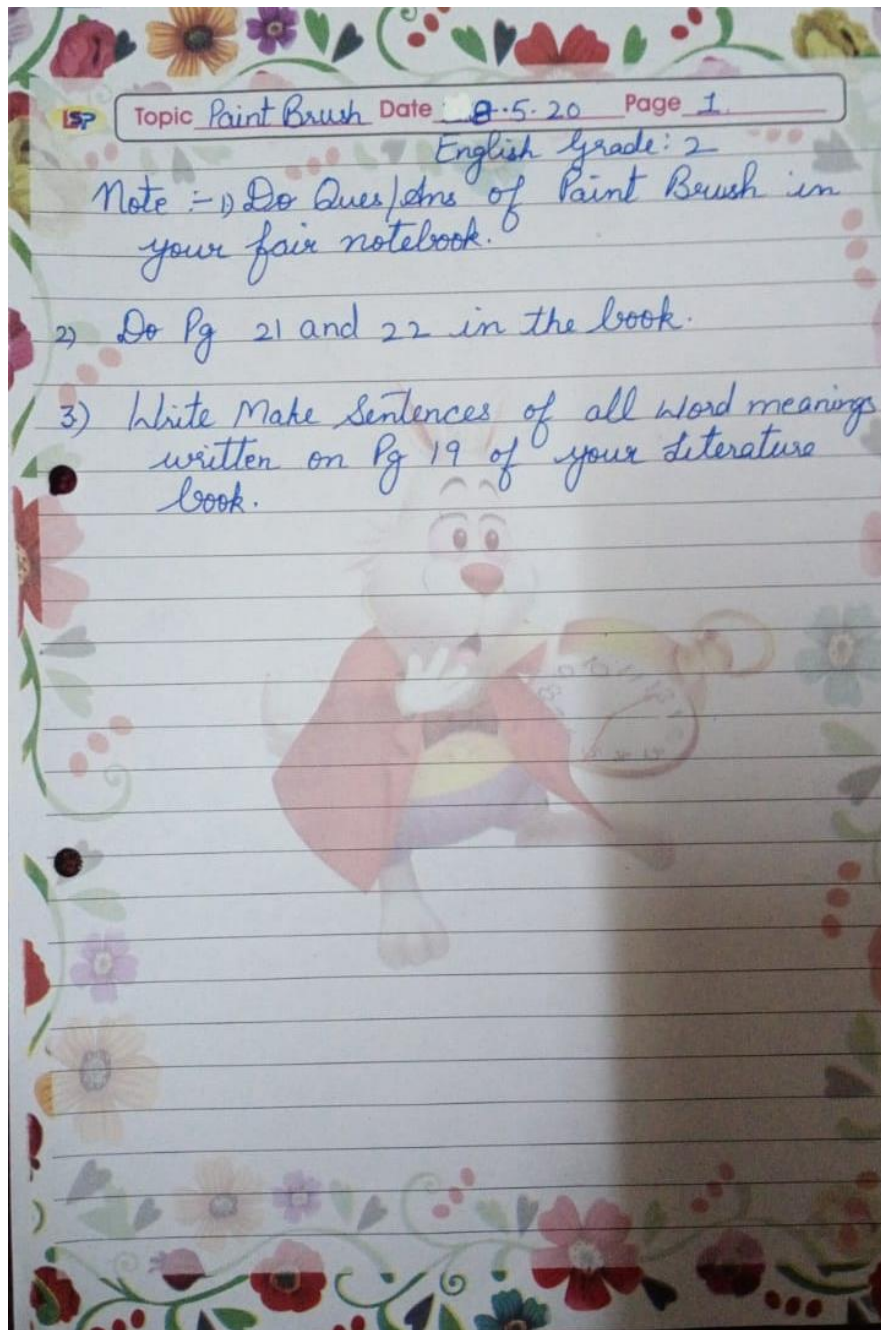 LSP Topic Paint Brush Date 8.5.20 Page 1
English Grade: 2
Note :- 1) Do Ques/Ans of Paint Brush in
your fair notebook.
2) Do Pg 21 and 22 in the book.
3) Write Make Sentences of all word meanings
written on Pg 19 of your Literature
book.